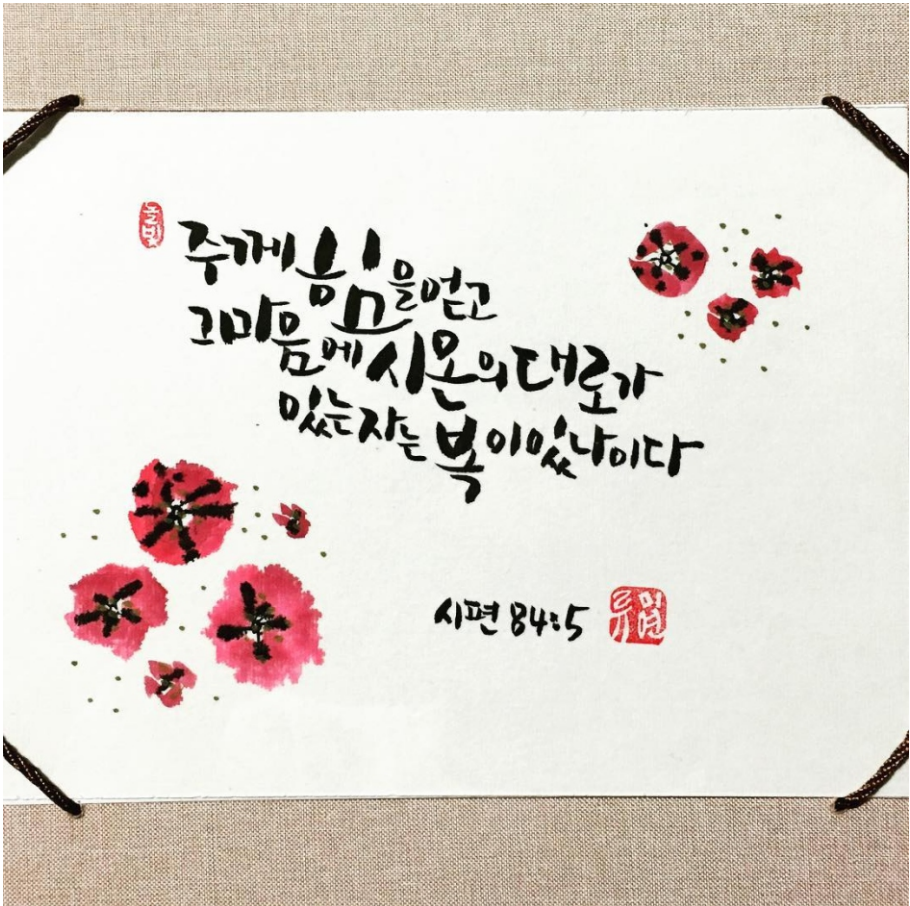 주께 힘을 얻고
그 마음에 시온의 대로가
있는 자는 복이 있나이다
시편 84:5